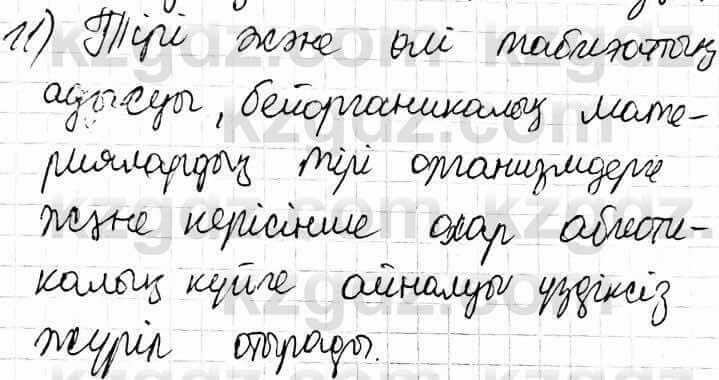 11) Тірі және өлі табиғаттың
ауысуы, бейорганикалық мате-
риялардың тірі организмдерге
және керісінше олар абиоти-
калық күйге айналуы үздіксіз
жүріп отырады.